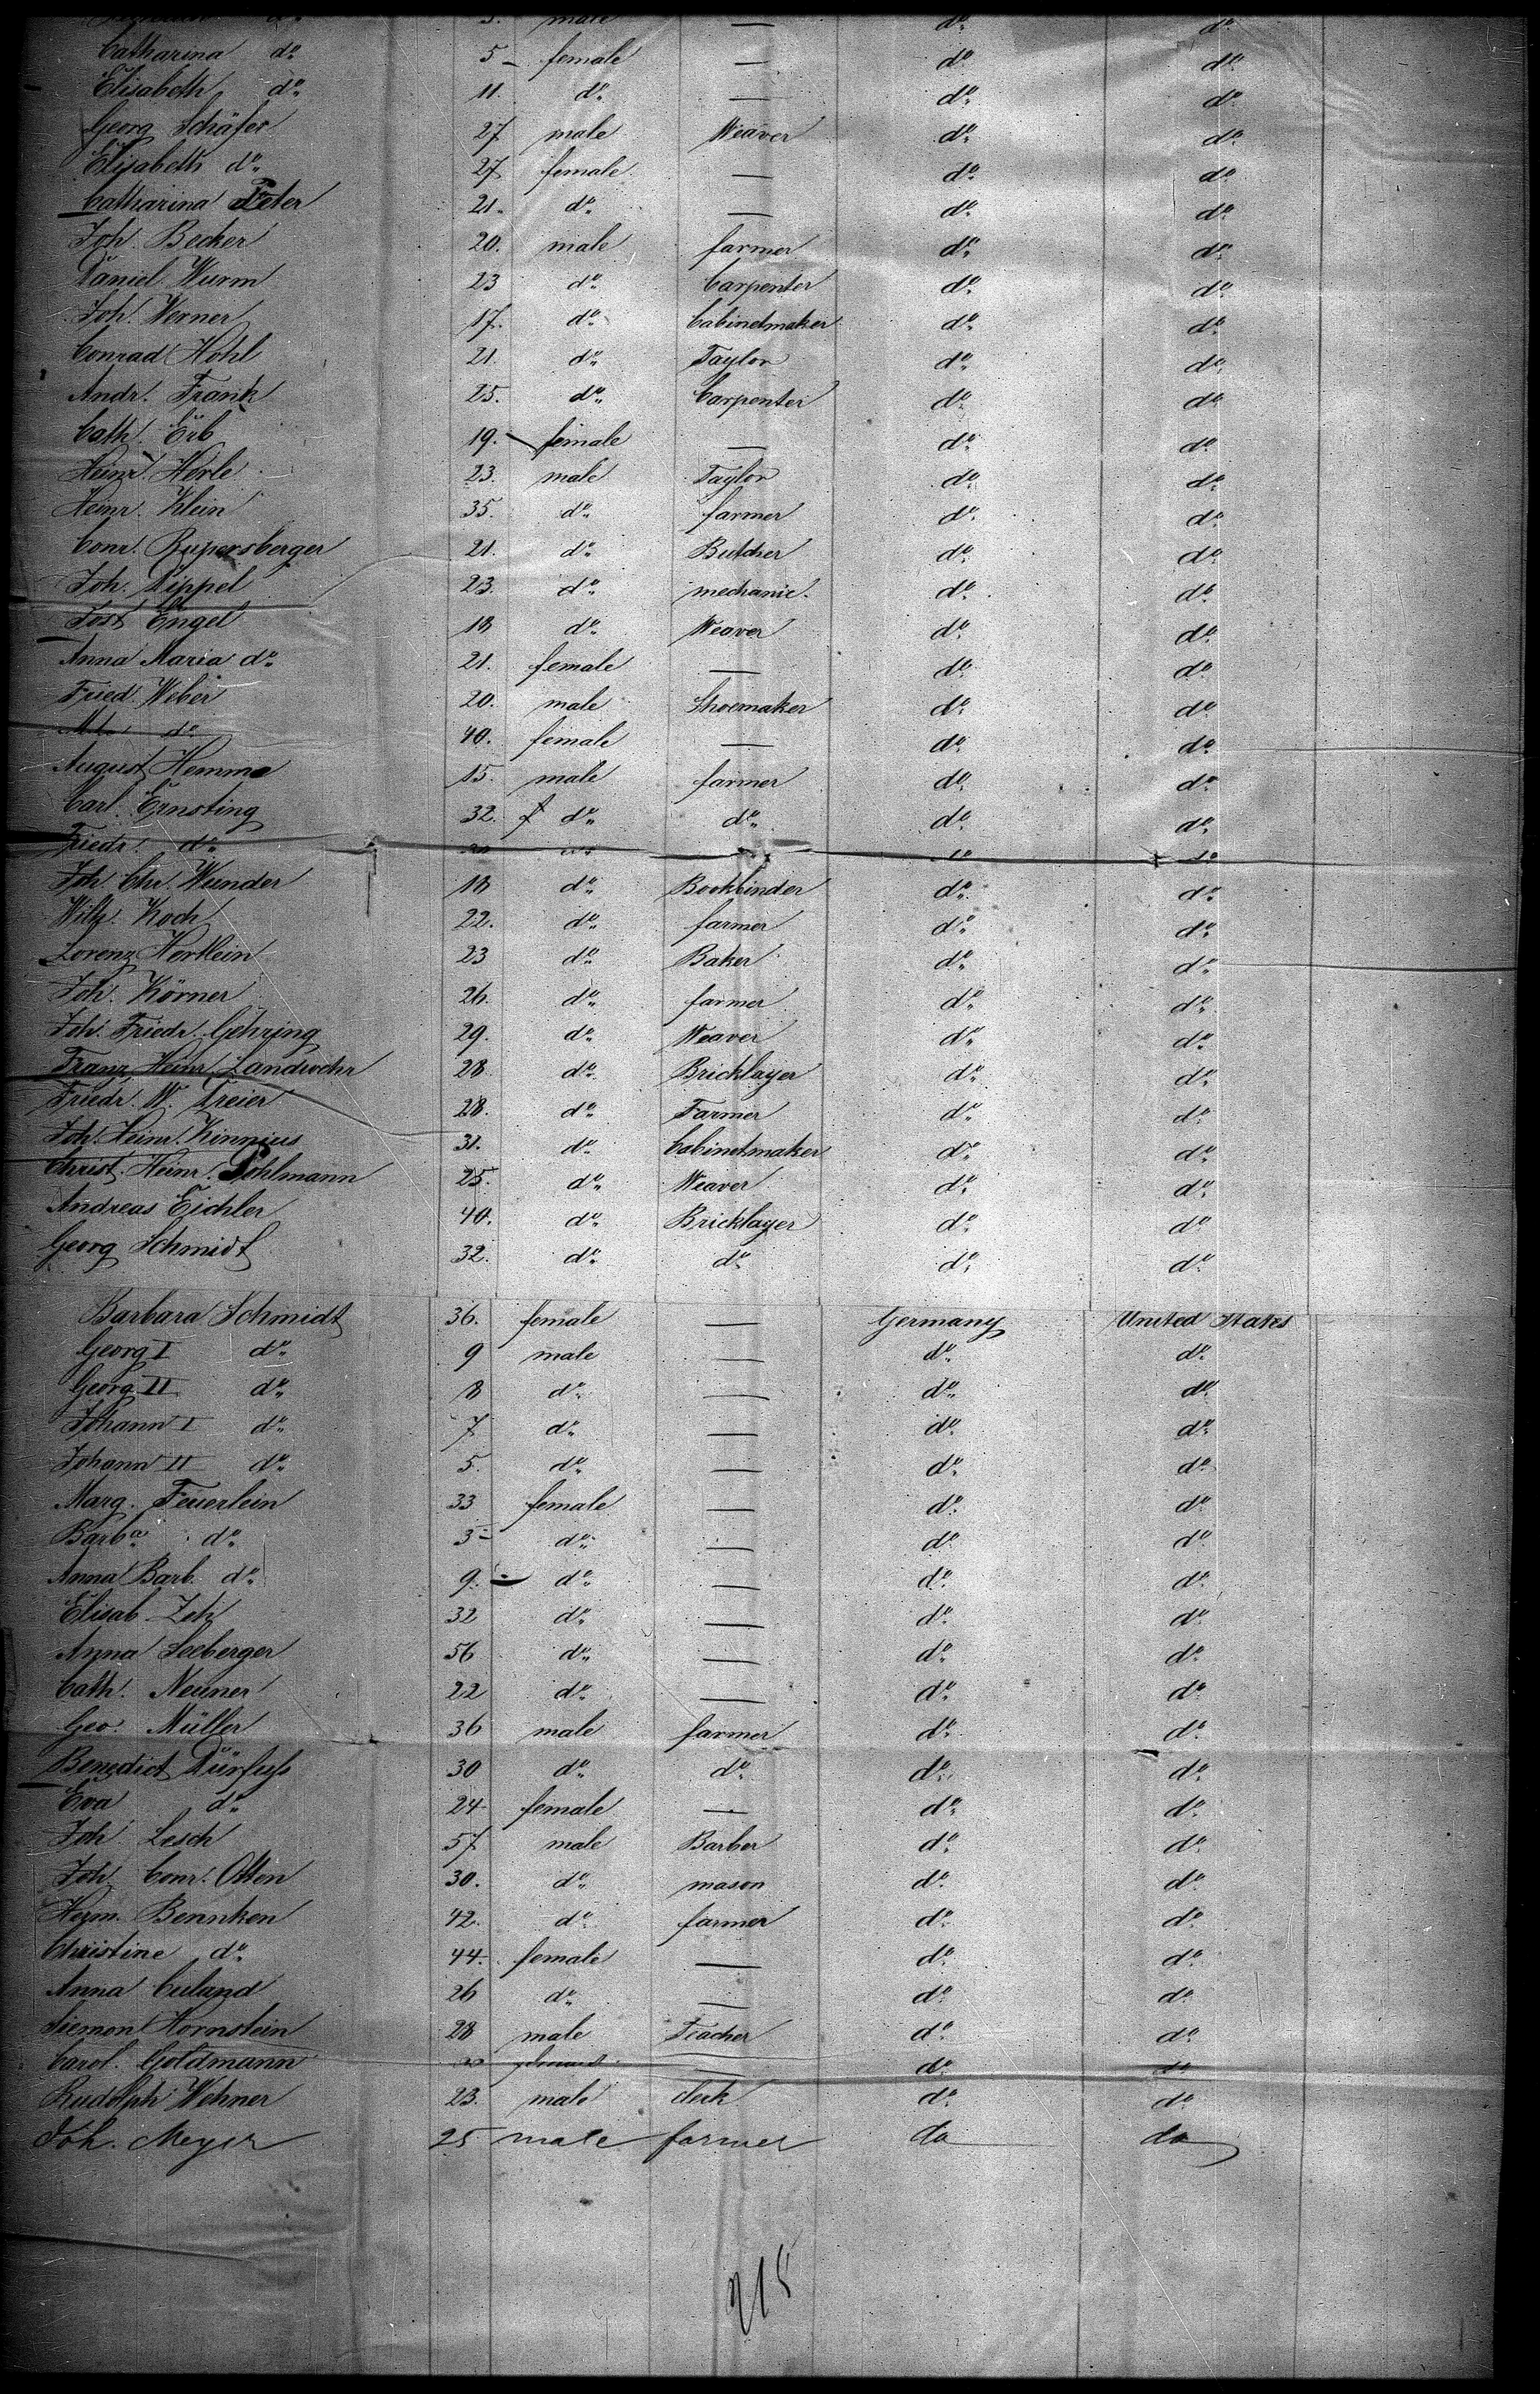 male — do do
Catharina do 5 - female — do do
Elisabeth do 11. do — do do
Georg Schäfer 27 male Weaver do do
Elisabeth do 27 female — do do
Catharina Peter 21. do — do do
Joh. Becker 20. male farmer do do
Daniel Wurm 23 do Carpenter do do
Joh. Werner 17. do Cabinetmaker do do
Conrad Hohl 21. do Taylor do do
Andr. Frank 25. do Carpenter do do
Cath. Erb 19. - female — do do
Heinr. Herle 23. male Taylor do do
Heinr. Klein 35. do farmer do do
Conr. Rupersberger 21. do Butcher do do
Joh. Dippel 23. do mechanic. do do
Jost Engel 18 do Weaver do do
Anna Maria do 21. female — do do
Fried. Weber 20. male Shoemaker do do
do 40. female — do do
August Hemme 15. male farmer do do
Carl. Ernsting 32. do do do do
Friedr. do do do
Joh. Chr. Wunder 18 do Bookbinder do do
Wilh. Koch 22. do farmer do do
Lorenz Hertlein 23 do Baker do do
Joh. Körner 26. do farmer do do
Joh. Friedr. Gehring 29. do Weaver do do
Franz Heinr. Landwehr 28 do Bricklayer do do
Friedr. W. Dreier 28. do Farmer do do
Joh. Heinr. Kinnius 31. do Cabinetmaker do do
Christ. Heinr. Pohlmann 25. do Weaver do do
Andreas Eichler 40. do Bricklayer do do
Georg Schmidt 32. do do do do
Barbara Schmidt 36. female — Germany United States
Georg I do 9 male — do do
Georg II do 8 do — do do
Johann I do 7 do — do do
Johann II do 5. do — do do
Marg. Feuerlein 33 female — do do
Barba do 3 - do — do do
Anna Barb. do 9. - do — do do
Elisab. Zeh 32 do — do do
Anna Seeberger 56 do — do do
Cath. Neuner 22 do — do do
Geo. Müller 36 male farmer do do
Benedict Dürfuss 30 do do do do
Eva do 24 female — do do
Joh. Lesch 57 male Barber do do
Joh. Conr. Otten 30. do mason do do
Herm. Bennken 42. do farmer do do
Christine do 44. female — do do
Anna Culand 26 do — do do
Siemon Hornstein 28 male Teacher do do
Carol. Goldmann — do do
Rudolph Wehner 23. male clerk do do
Joh. Meyer 25 male farmer do do
218